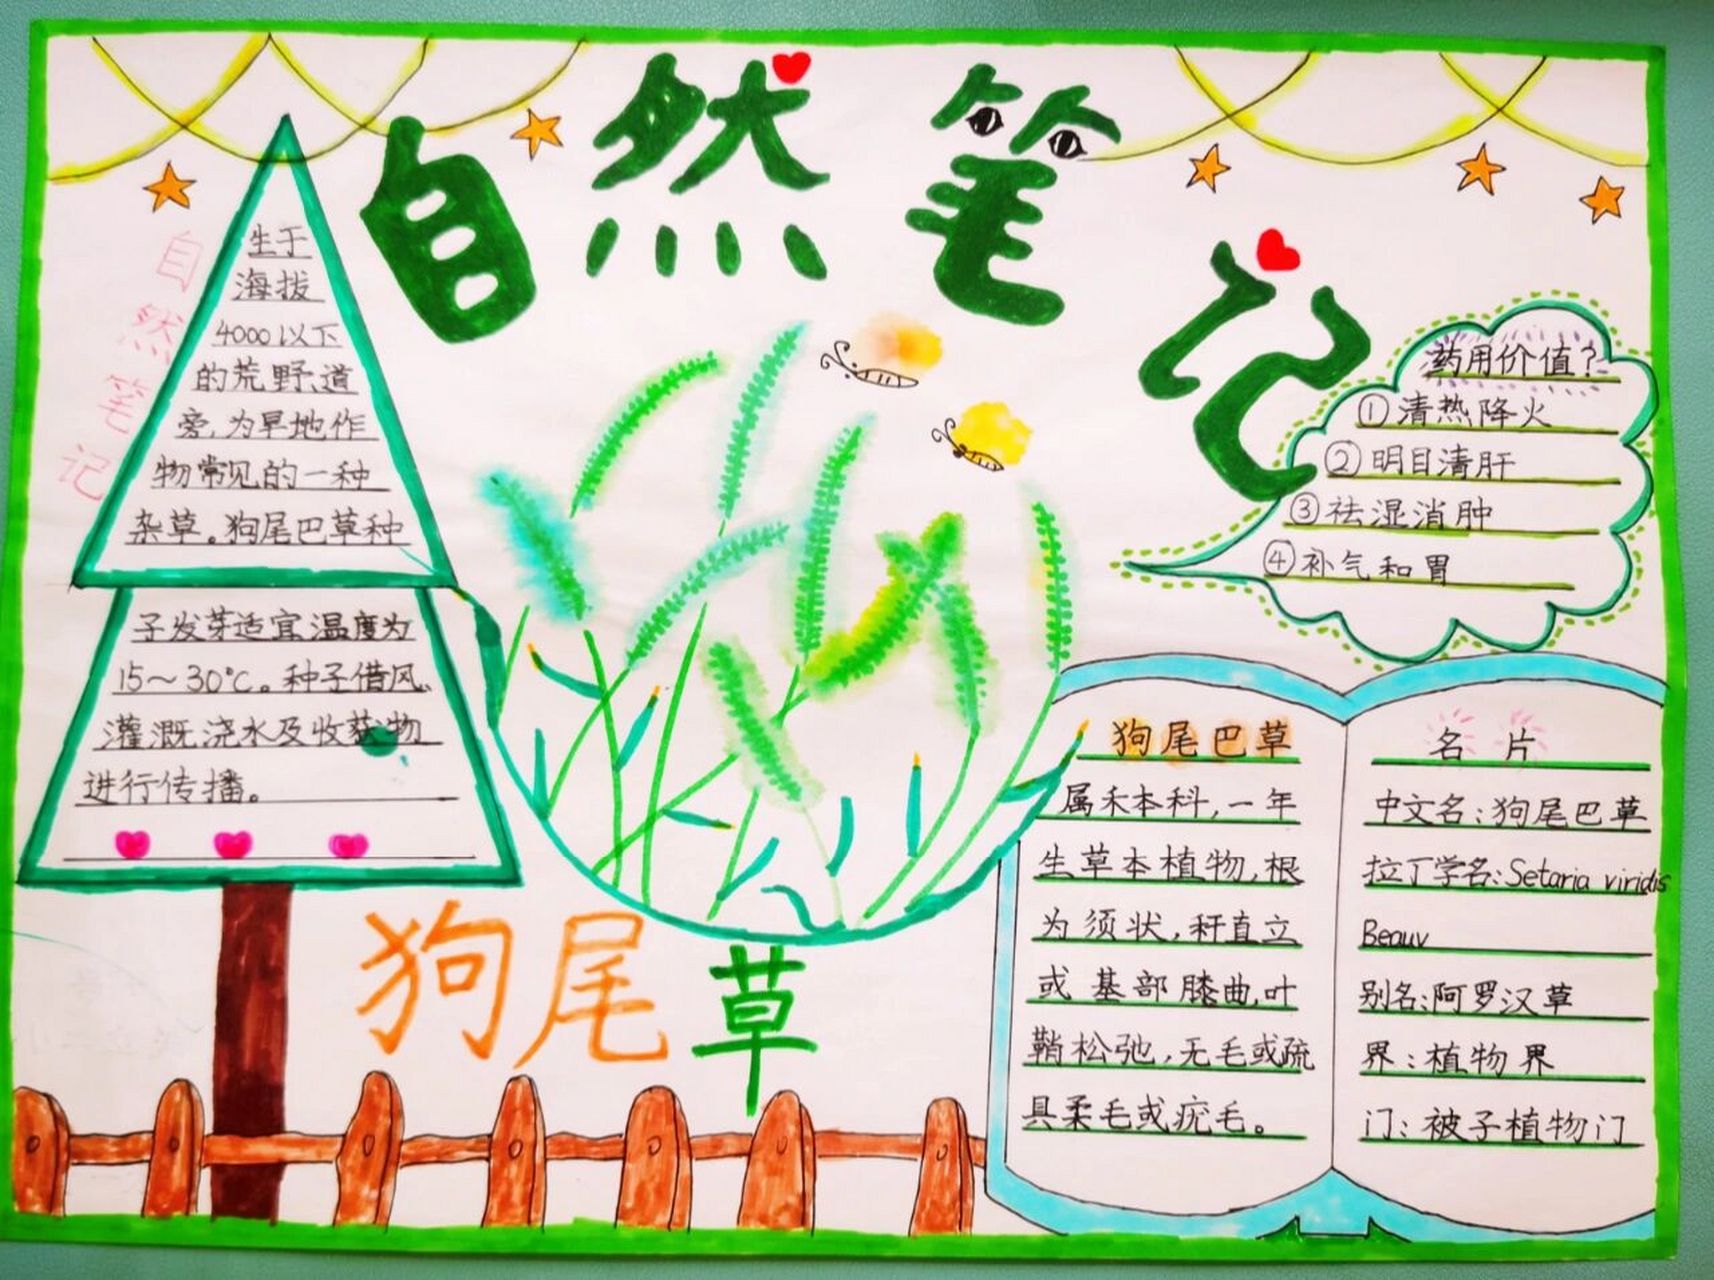 自然笔记
自然笔记
生于
海拔
4000以下
的荒野、道
旁,为旱地作
物常见的一种
杂草。狗尾巴草种
子发芽适宜温度为
15～30℃。种子借风、
灌溉浇水及收获物
进行传播。
药用价值?
①清热降火
②明目清肝
③祛湿消肿
④补气和胃
狗尾草
狗尾巴草
属禾本科,一年
生草本植物,根
为须状,秆直立
或基部膝曲,叶
鞘松弛,无毛或疏
具柔毛或疣毛。
名片
中文名:狗尾巴草
拉丁学名:Setaria viridis
Beauv
别名:阿罗汉草
界:植物界
门:被子植物门